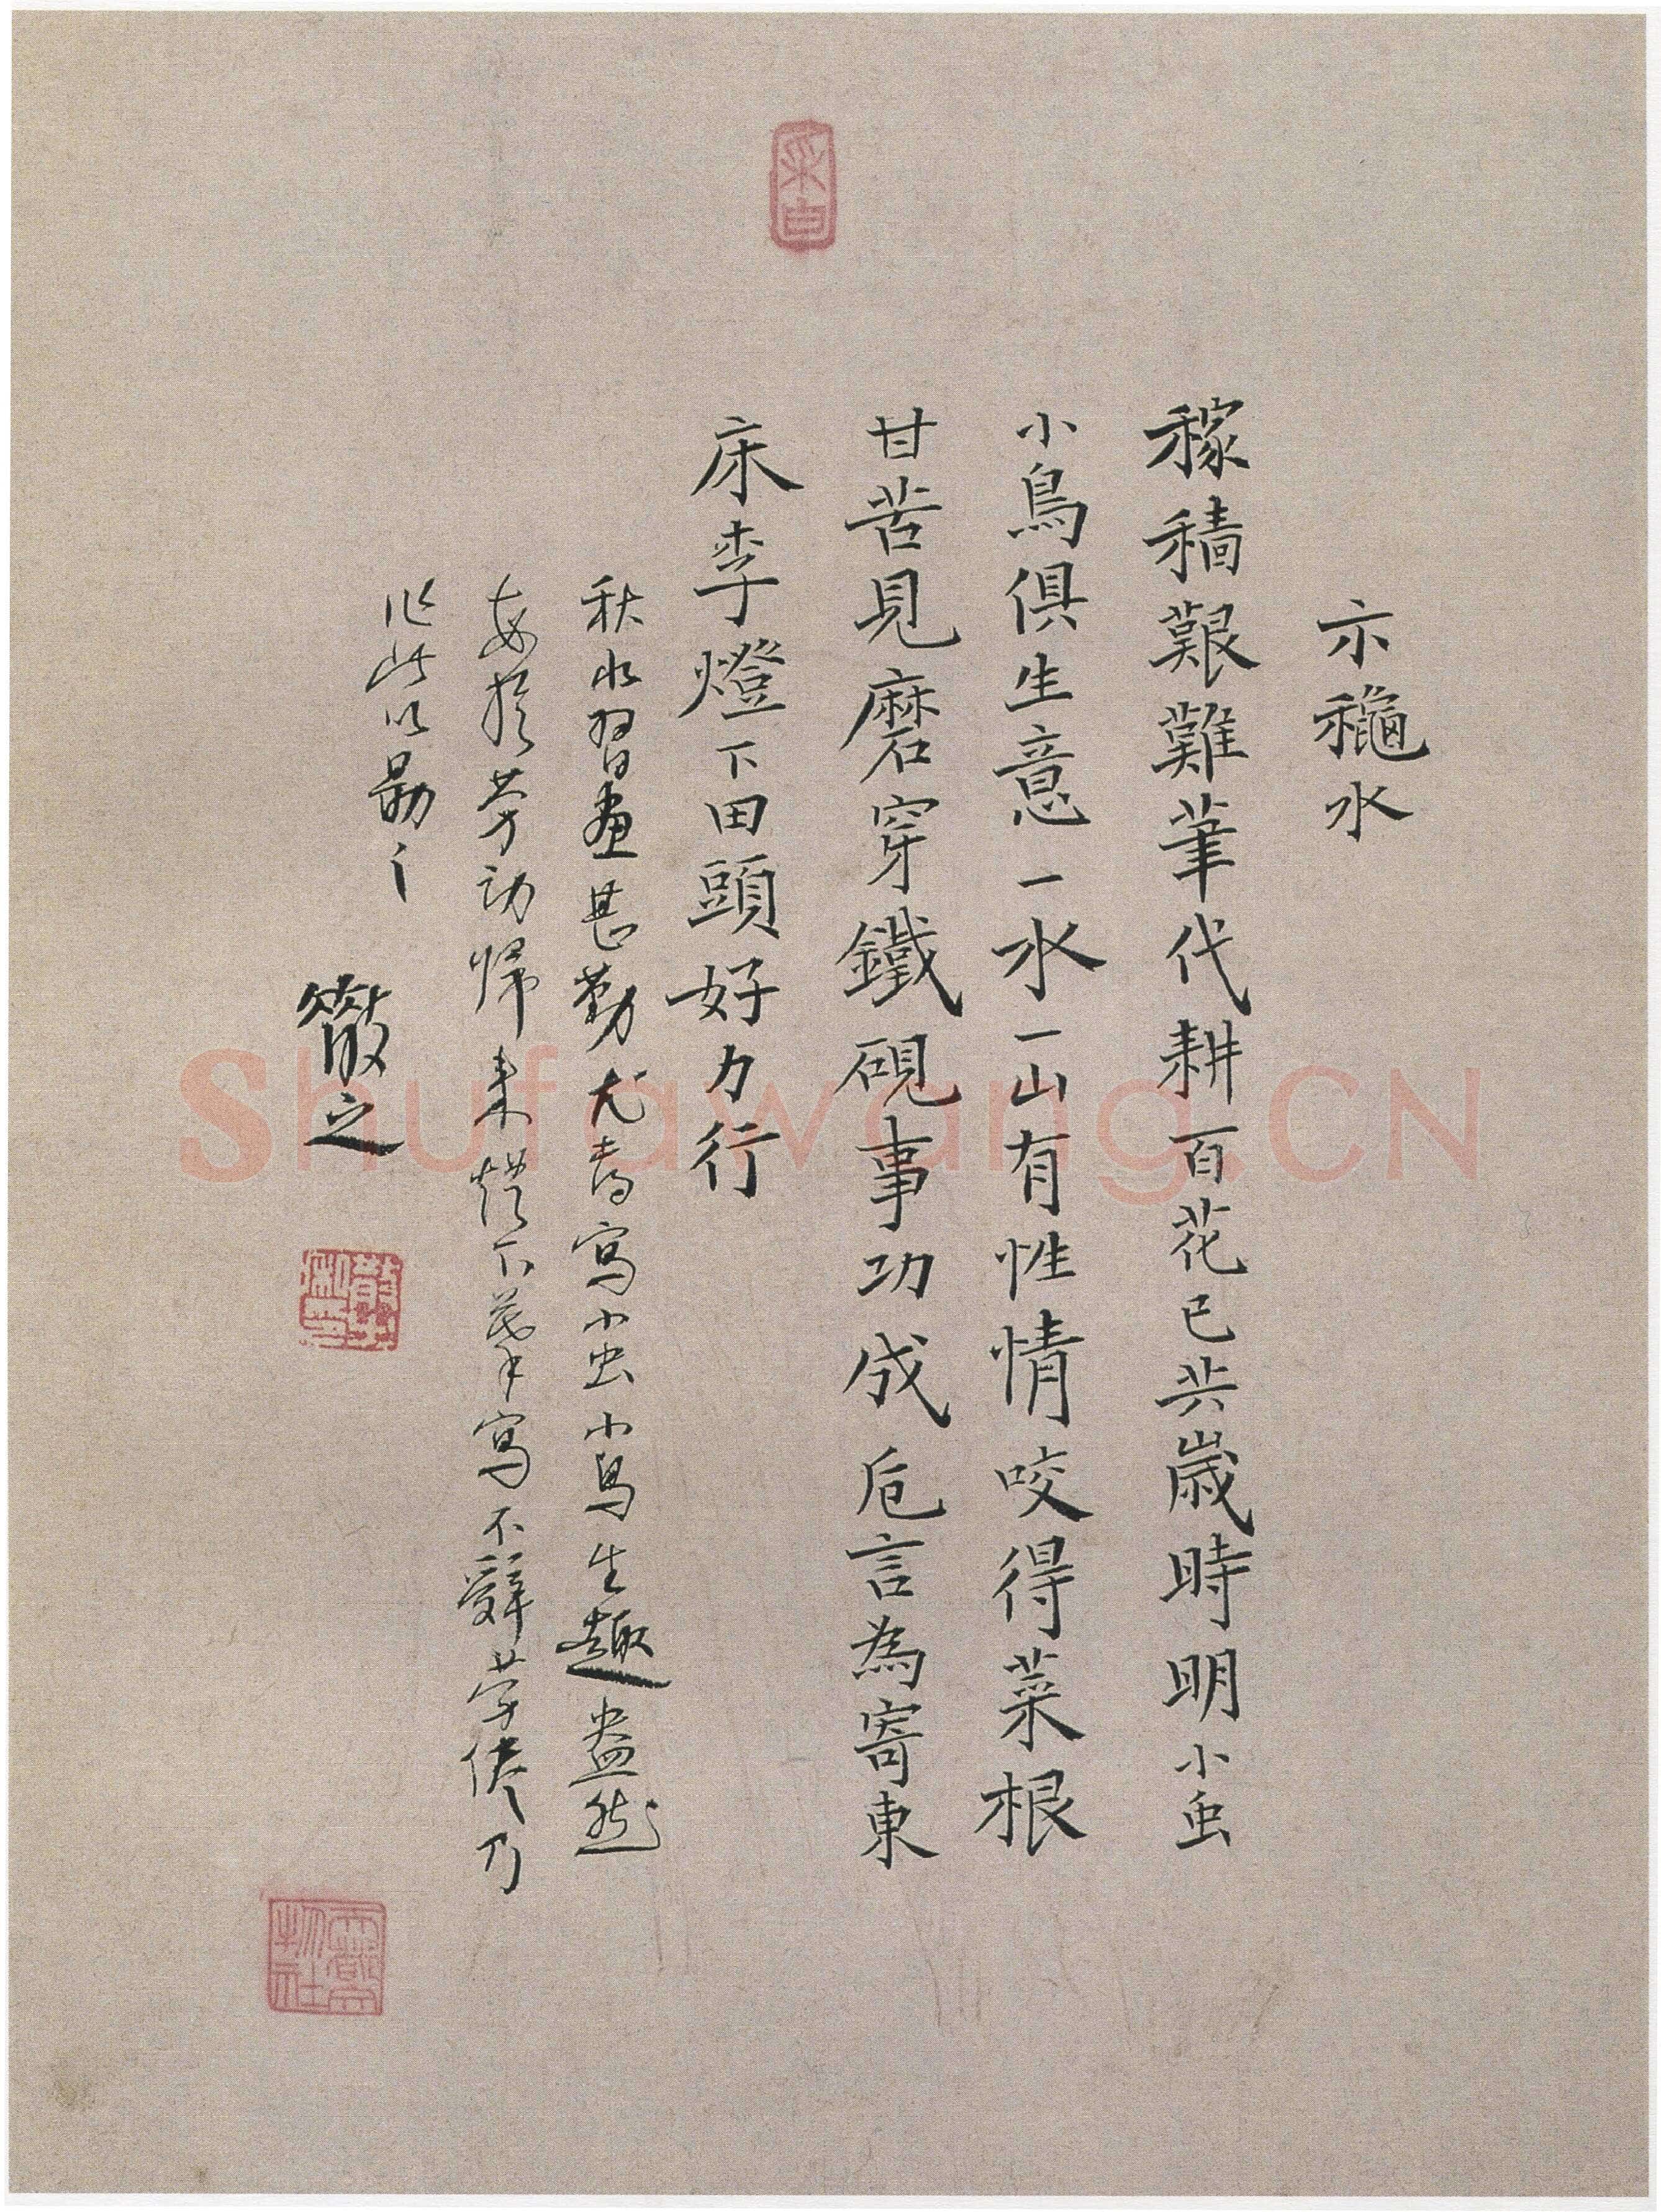 示龝水
稼穑艱難筆代耕百花已共歲時明小虫
小鳥俱生意一水一山有性情咬得菜根
甘苦見磨穿鐵硯事功成卮言為寄東
床李燈下田頭好力行
秋水習畫甚勤尤喜寫小虫小鳥生趣盎然
每於劳动归来燈下落筆寫不辭劳倦乃
作此以勗之
散之
Shufawang.CN
采白